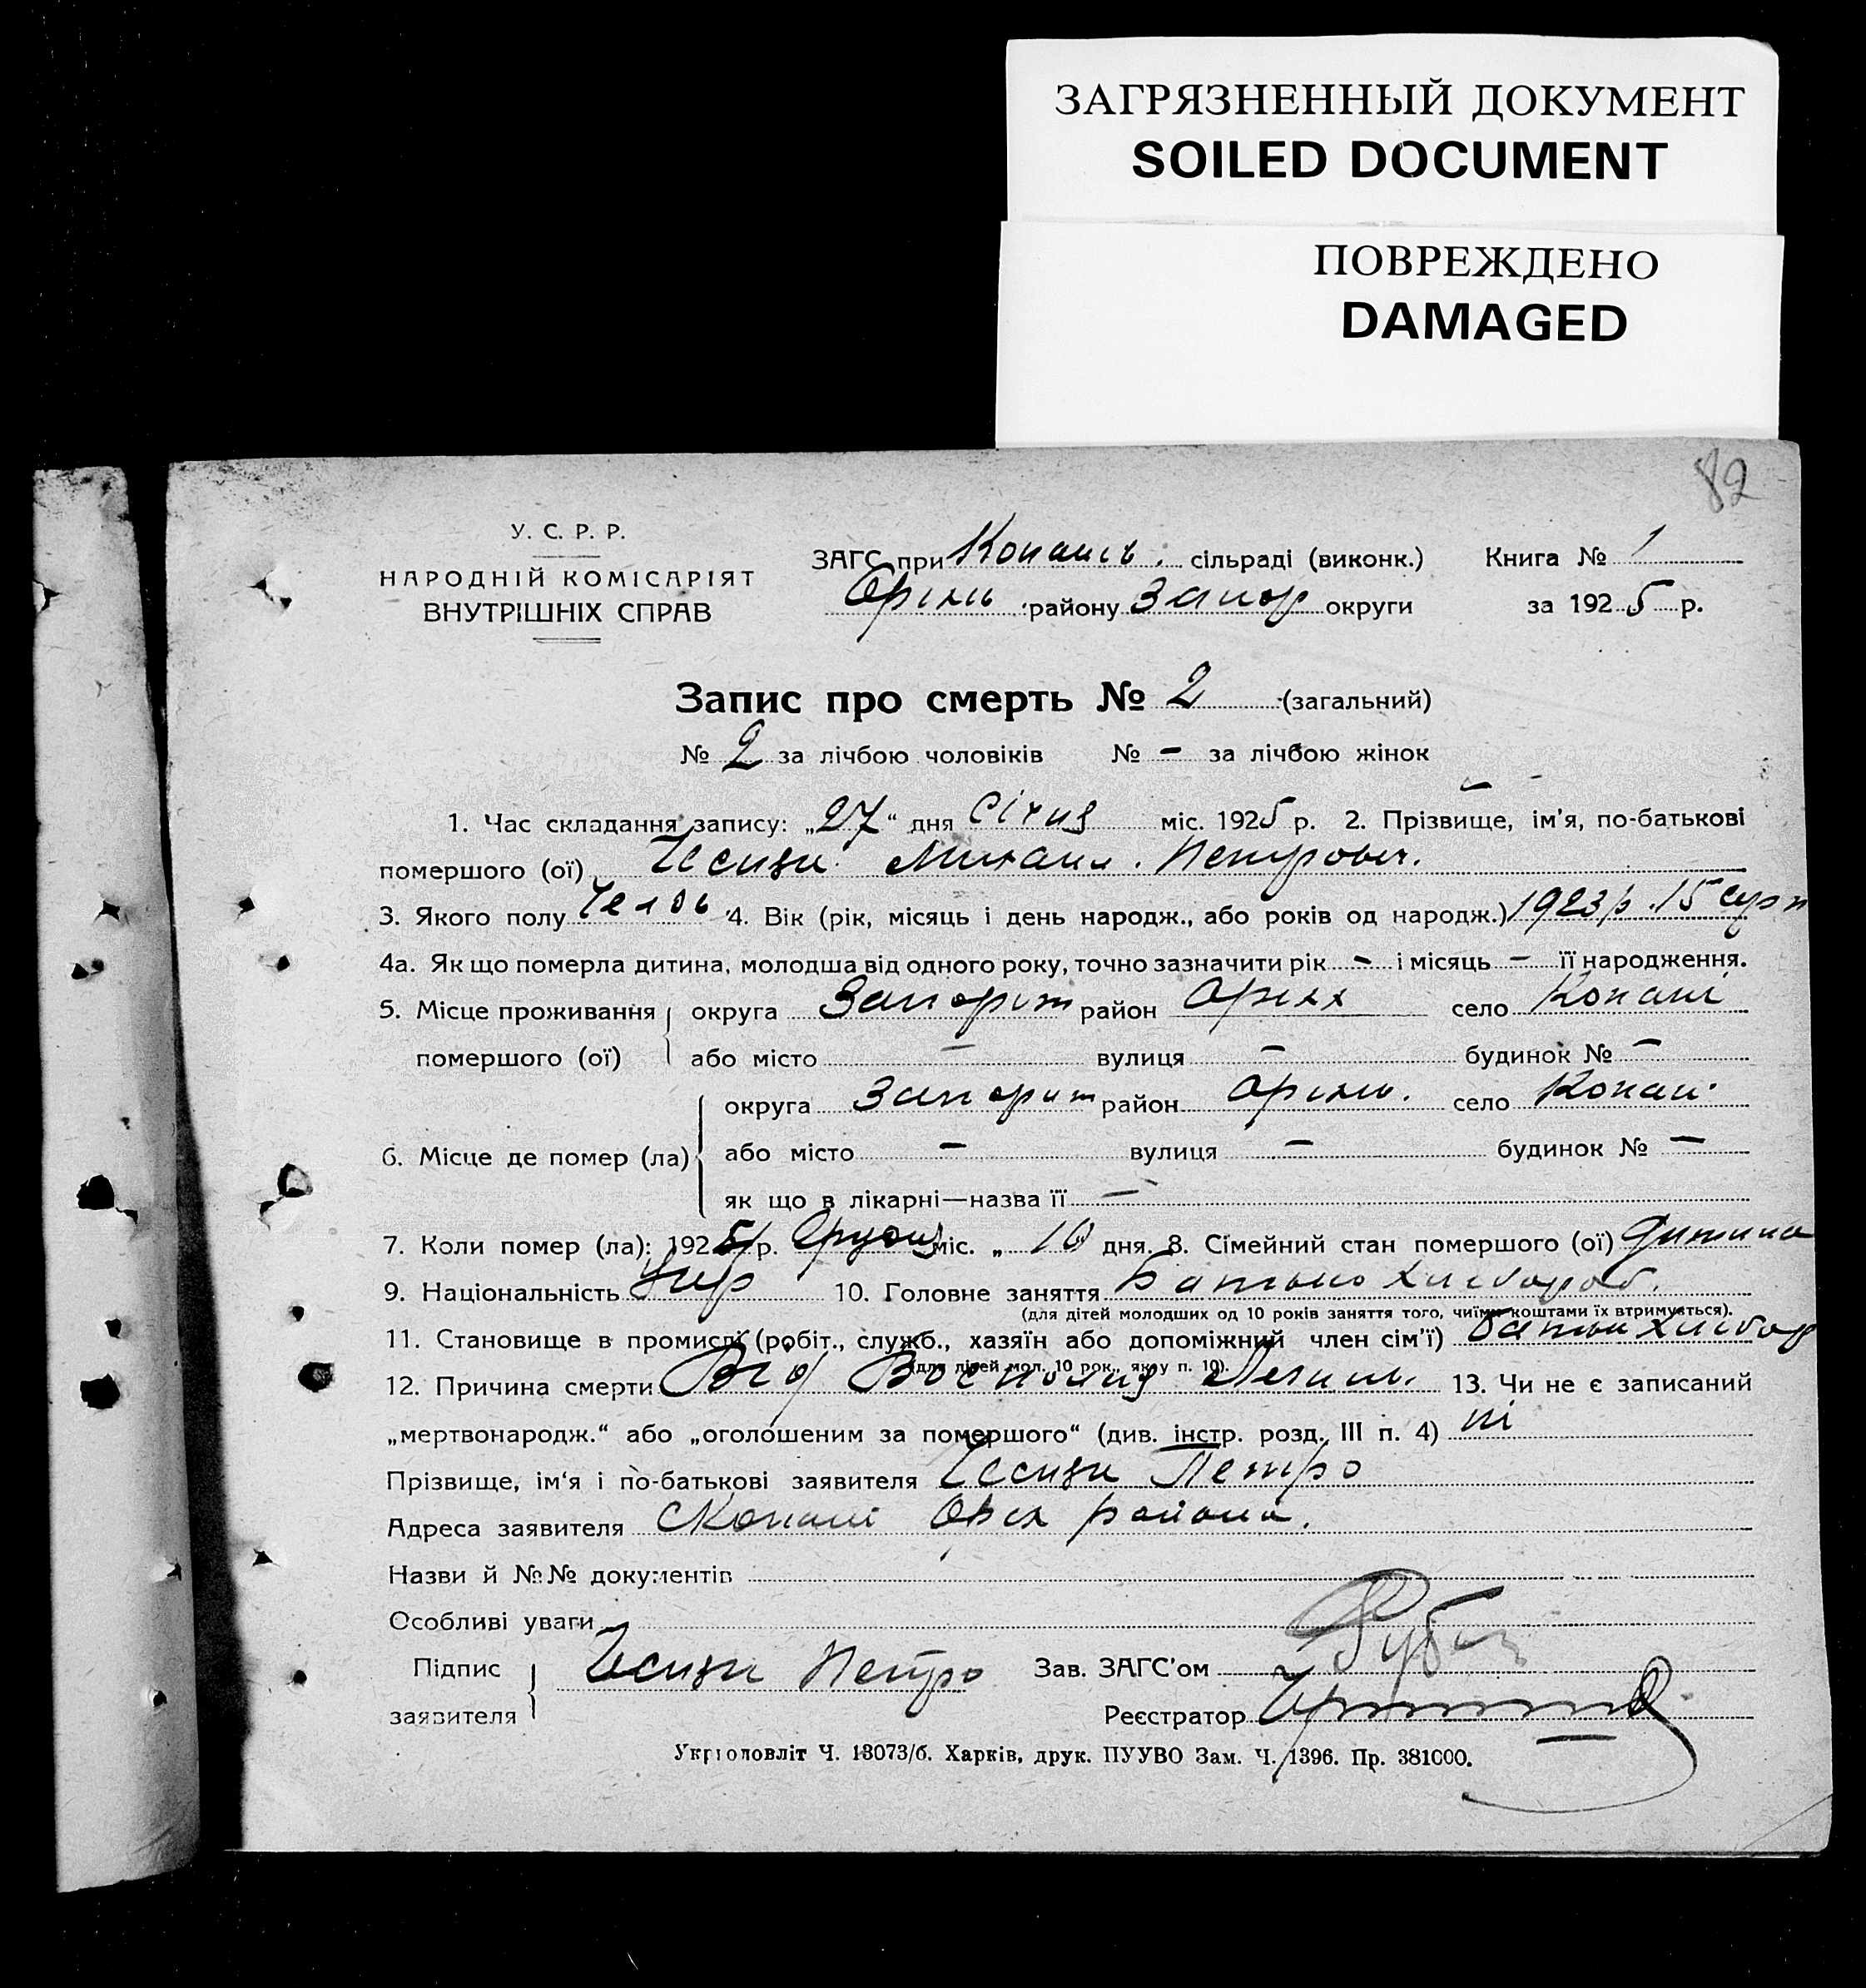 ЗАГРЯЗНЕННЫЙ ДОКУМЕНТ
SOILED DOCUMENT
ПОВРЕЖДЕНО
DAMAGED
82
У. С. Р. Р.
НАРОДНІЙ КОМІСАРІЯТ
ВНУТРІШНІХ СПРАВ
ЗАГС при Копансь. сільраді (виконк.) Книга № 1
Оріхів. району Запор округи за 1925 р.
Запис про смерть № 2 (загальний)
№ 2 за лічбою чоловіків № – за лічбою жінок
1. Час складання запису: „27“ дня Січня міс. 1925 р. 2. Прізвище, ім’я, по-батькові
помершого (ої) Михаил. Петрович.
3. Якого полу Челов 4. Вік (рік, місяць і день народж., або років од народж.) 1923 р. 15 серп
4а. Як що померла дитина, молодша від одного року, точно зазначити рік – і місяць – її народження.
5. Місце проживання помершого (ої) округа Запоріж район Оріхх село Копані
або місто – вулиця – будинок № –
6. Місце де помер (ла) округа Запоріж район Оріхів. село Копані
або місто – вулиця – будинок № –
як що в лікарні—назва її –
7. Коли помер (ла): 1925 р. міс. „ 10 дня. 8. Сімейний стан помершого (ої) дитина
9. Національність Укр 10. Головне заняття Батько хлебороб.
(для дітей молодших од 10 років заняття того, чиїми коштами їх втримується).
11. Становище в промислі (робіт., служб., хазяїн або допоміжний член сім’ї) батьки хлебор
(для дітей мол. 10 рок., як у п. 10).
12. Причина смерти Від Восполия Легких. 13. Чи не є записаний
„мертвонародж.“ або „оголошеним за помершого“ (див. інстр. розд. III п. 4) ні
Прізвище, ім‘я і по-батькові заявителя Петро
Адреса заявителя С Копані Орех района.
Назви й №№ документів
Особливі уваги
Підпис заявителя Петро Зав. ЗАГС’ом
Реєстратор
Укрголовліт Ч. 13073/б. Харків, друк. ПУУВО Зам. Ч. 1396. Пр. 381000.